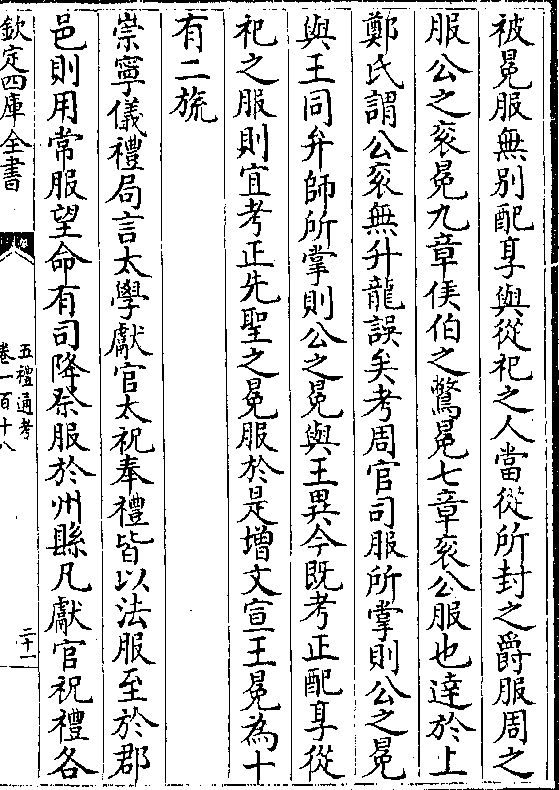 被冕服無別配享與從祀之人當從所封之爵服周之
服公之衮冕九章侯伯之鷩冕七章衮公服也達於上
鄭氏謂公衮無升龍誤矣考周官司服所掌則公之冕
與王同弁師所掌則公之冕與王異今既考正配享從
祀之服則宜考正先聖之冕服於是增文宣王冕為十
有二旒
崇寧儀禮局言太學獻官太祝奉禮皆以法服至於郡
邑則用常服望命有司降祭服於州縣凡獻官祝禮各
欽定四庫全書
五禮通考
卷一百十八
二十一